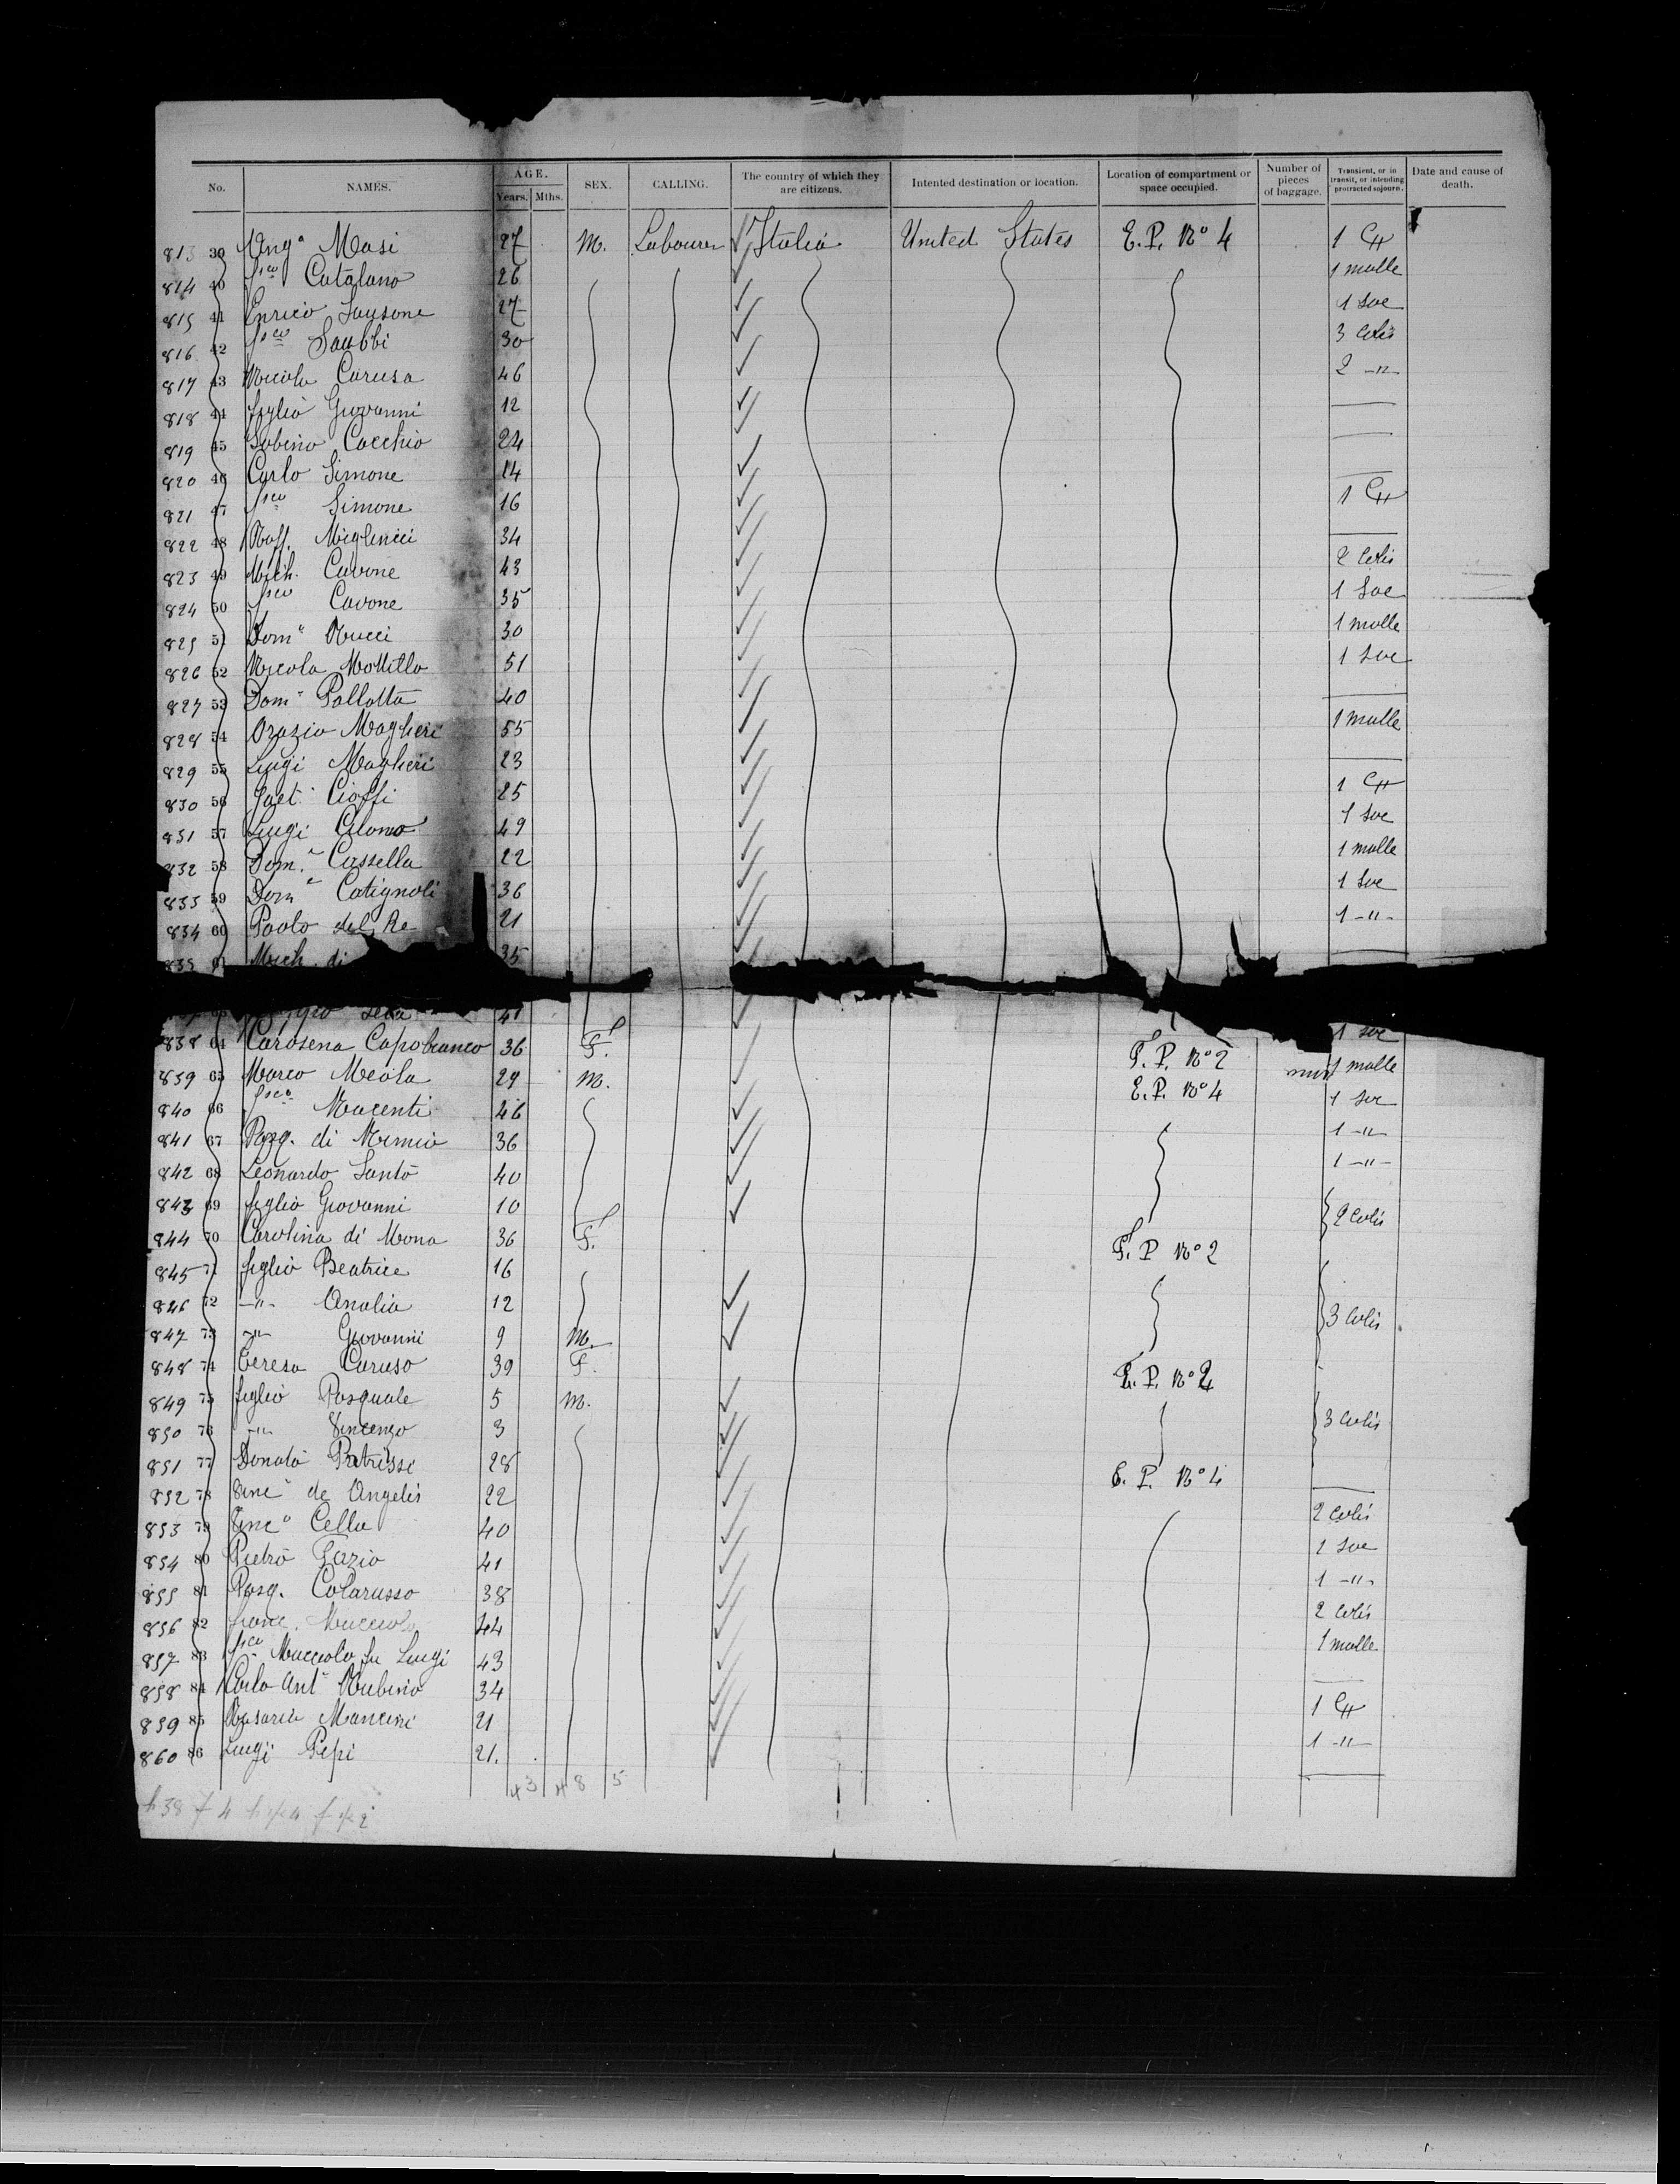 No. NAMES. AGE. Years. Mths. SEX. CALLING. The country of which they are citizens. Intented destination or location. Location of compartment or space occupied. Number of pieces of baggage. Transient, or in transit, or intending protracted sojourn. Date and cause of death.
813 39 Ang° Masi 27 M. Labourer Italia United States E. P. N° 4 1 
814 40 Catalano 26 1 malle
815 41 Enrico Sansone 27 1 sac
816 42 30 3 Colis
817 43 Nicola Carusa 46 2 -"-
818 44 figlio Giovanni 12
819 45 Sabino Cocchio 24
820 46 Carlo Simone 14
821 47 Simone 16 1
822 48 Raff. 34
823 49 Mich. Cavone 43 2 Colis
824 50 Cavone 35 1 Sac
825 51 Dom° Nucci 30 1 malle
826 52 Nicola Mottillo 51 1 sac
827 53 Dom° Pallotta 40
828 54 Orazio Maglieri 55 1 malle
829 55 Luigi Maglieri 23
830 56 Gaet. Cioffi 25 1
831 57 Luigi 49 1 sac
832 58 Dom.° Cassella 22 1 malle
833 59 Dom° Catignoli 36 1 sac
834 60 Paolo del Re 21 1 -"-
835 61 Mich. di 35
41
838 64 Carosena Capobianco 36 F. F. P. N° 2 1 sac
839 65 Marco Meola 29 M. E. P. N° 4 1 malle
840 66 46 1 sac
841 67 Pasq. di 36 1 -"-
842 68 Leonardo Santo 40 1 -"-
843 69 figlio Giovanni 10 2 Colis
844 70 Carolina di Mona 36 F. F. P. N° 2
845 71 figlio Beatrice 16
846 72 -"- Analia 12 3 Colis
847 73 -"- Giovanni 9 M.
848 74 Teresa Caruso 39 F. P. N° 2
849 75 figlio Pasquale 5 M.
850 76 -"- Vincenzo 3 3 Colis
851 77 Donato 28 E. P. N° 4
852 78 Vinc° de Angelis 22
853 79 Vinc° Cella 40 2 Colis
854 80 Pietro Fazio 41 1 sac
855 81 Pasq. Colarusso 38 1 -"-
856 82 Franc. Mucciolo 44 2 Colis
857 83 Mucciolo fu Luigi 43 1 malle
858 84 Carlo Ant° Rubino 34
859 85 Rosario Mancini 21 1
860 86 Luigi Pepi 21. 1 -"-